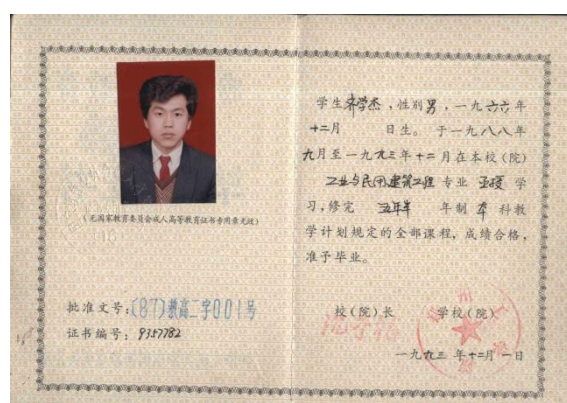 （无国家教育委员会成人高等教育证书专用章无效）
批准文号：(87)教高二字001号
证书编号：9357782
学生 学杰，性别男，一九六六年
十二月 日生。于一九八八年
九月至一九九三年十二月在本校(院)
工业与民用建筑工程 专业 学
习，修完 五年半 年制 本 科教
学计划规定的全部课程，成绩合格，
准予毕业。
校(院)长 学校(院)
一九九三年十二月一日